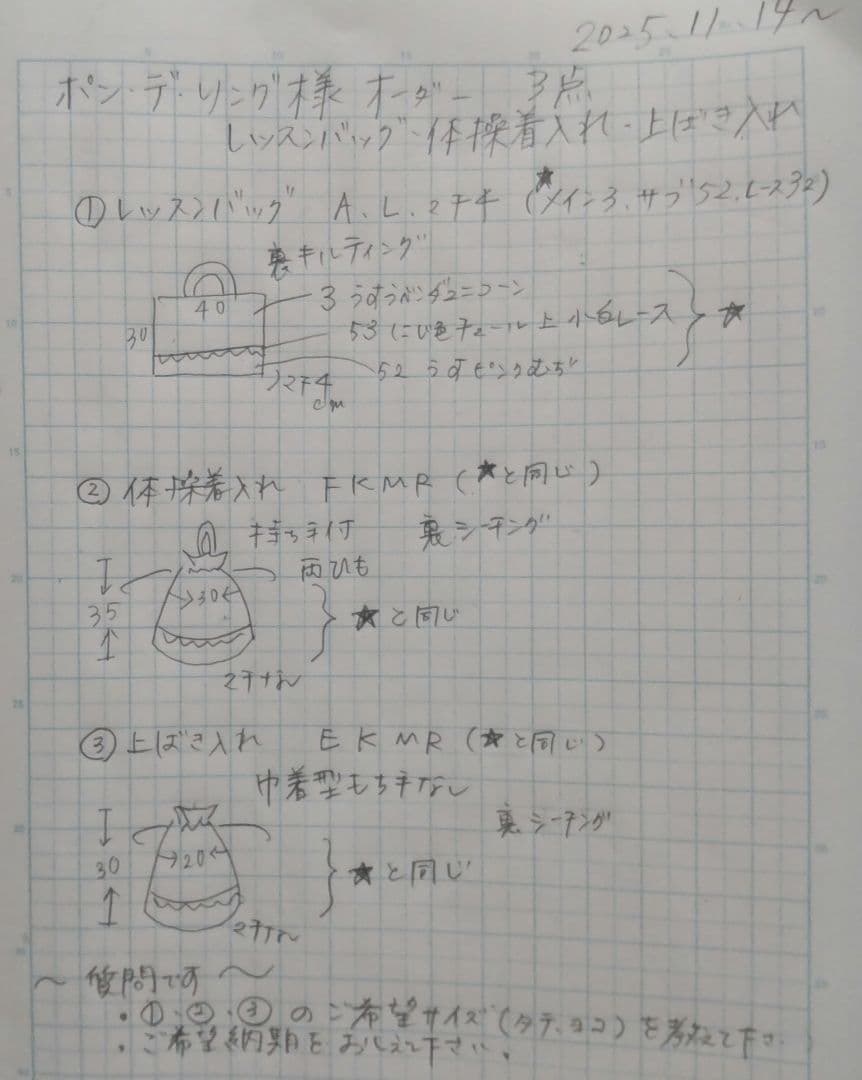 2025.11.14〜
ポン・デ・リング様 オーダー 3点
レッスンバッグ・体操着入れ・上ばき入れ
① レッスンバッグ A.L.マチ4 (★メイン3.サブ52.レース32)
裏キルティング
40
30
3 うすラベンダーユニコーン
53 にじ色チュール上 小白レース
★
52 うすピンクむじ
マチ4
cm
② 体操着入れ FKMR (★と同じ)
持ち手付 裏シーチング
両ひも
35
30
★と同じ
マチなし
③ 上ばき入れ EKMR (★と同じ)
巾着型もち手なし
裏シーチング
30
20
★と同じ
マチなし
〜 質問です 〜
・①・②・③のご希望サイズ(タテ、ヨコ)を教えて下さ
・ご希望納期をおしえて下さい。